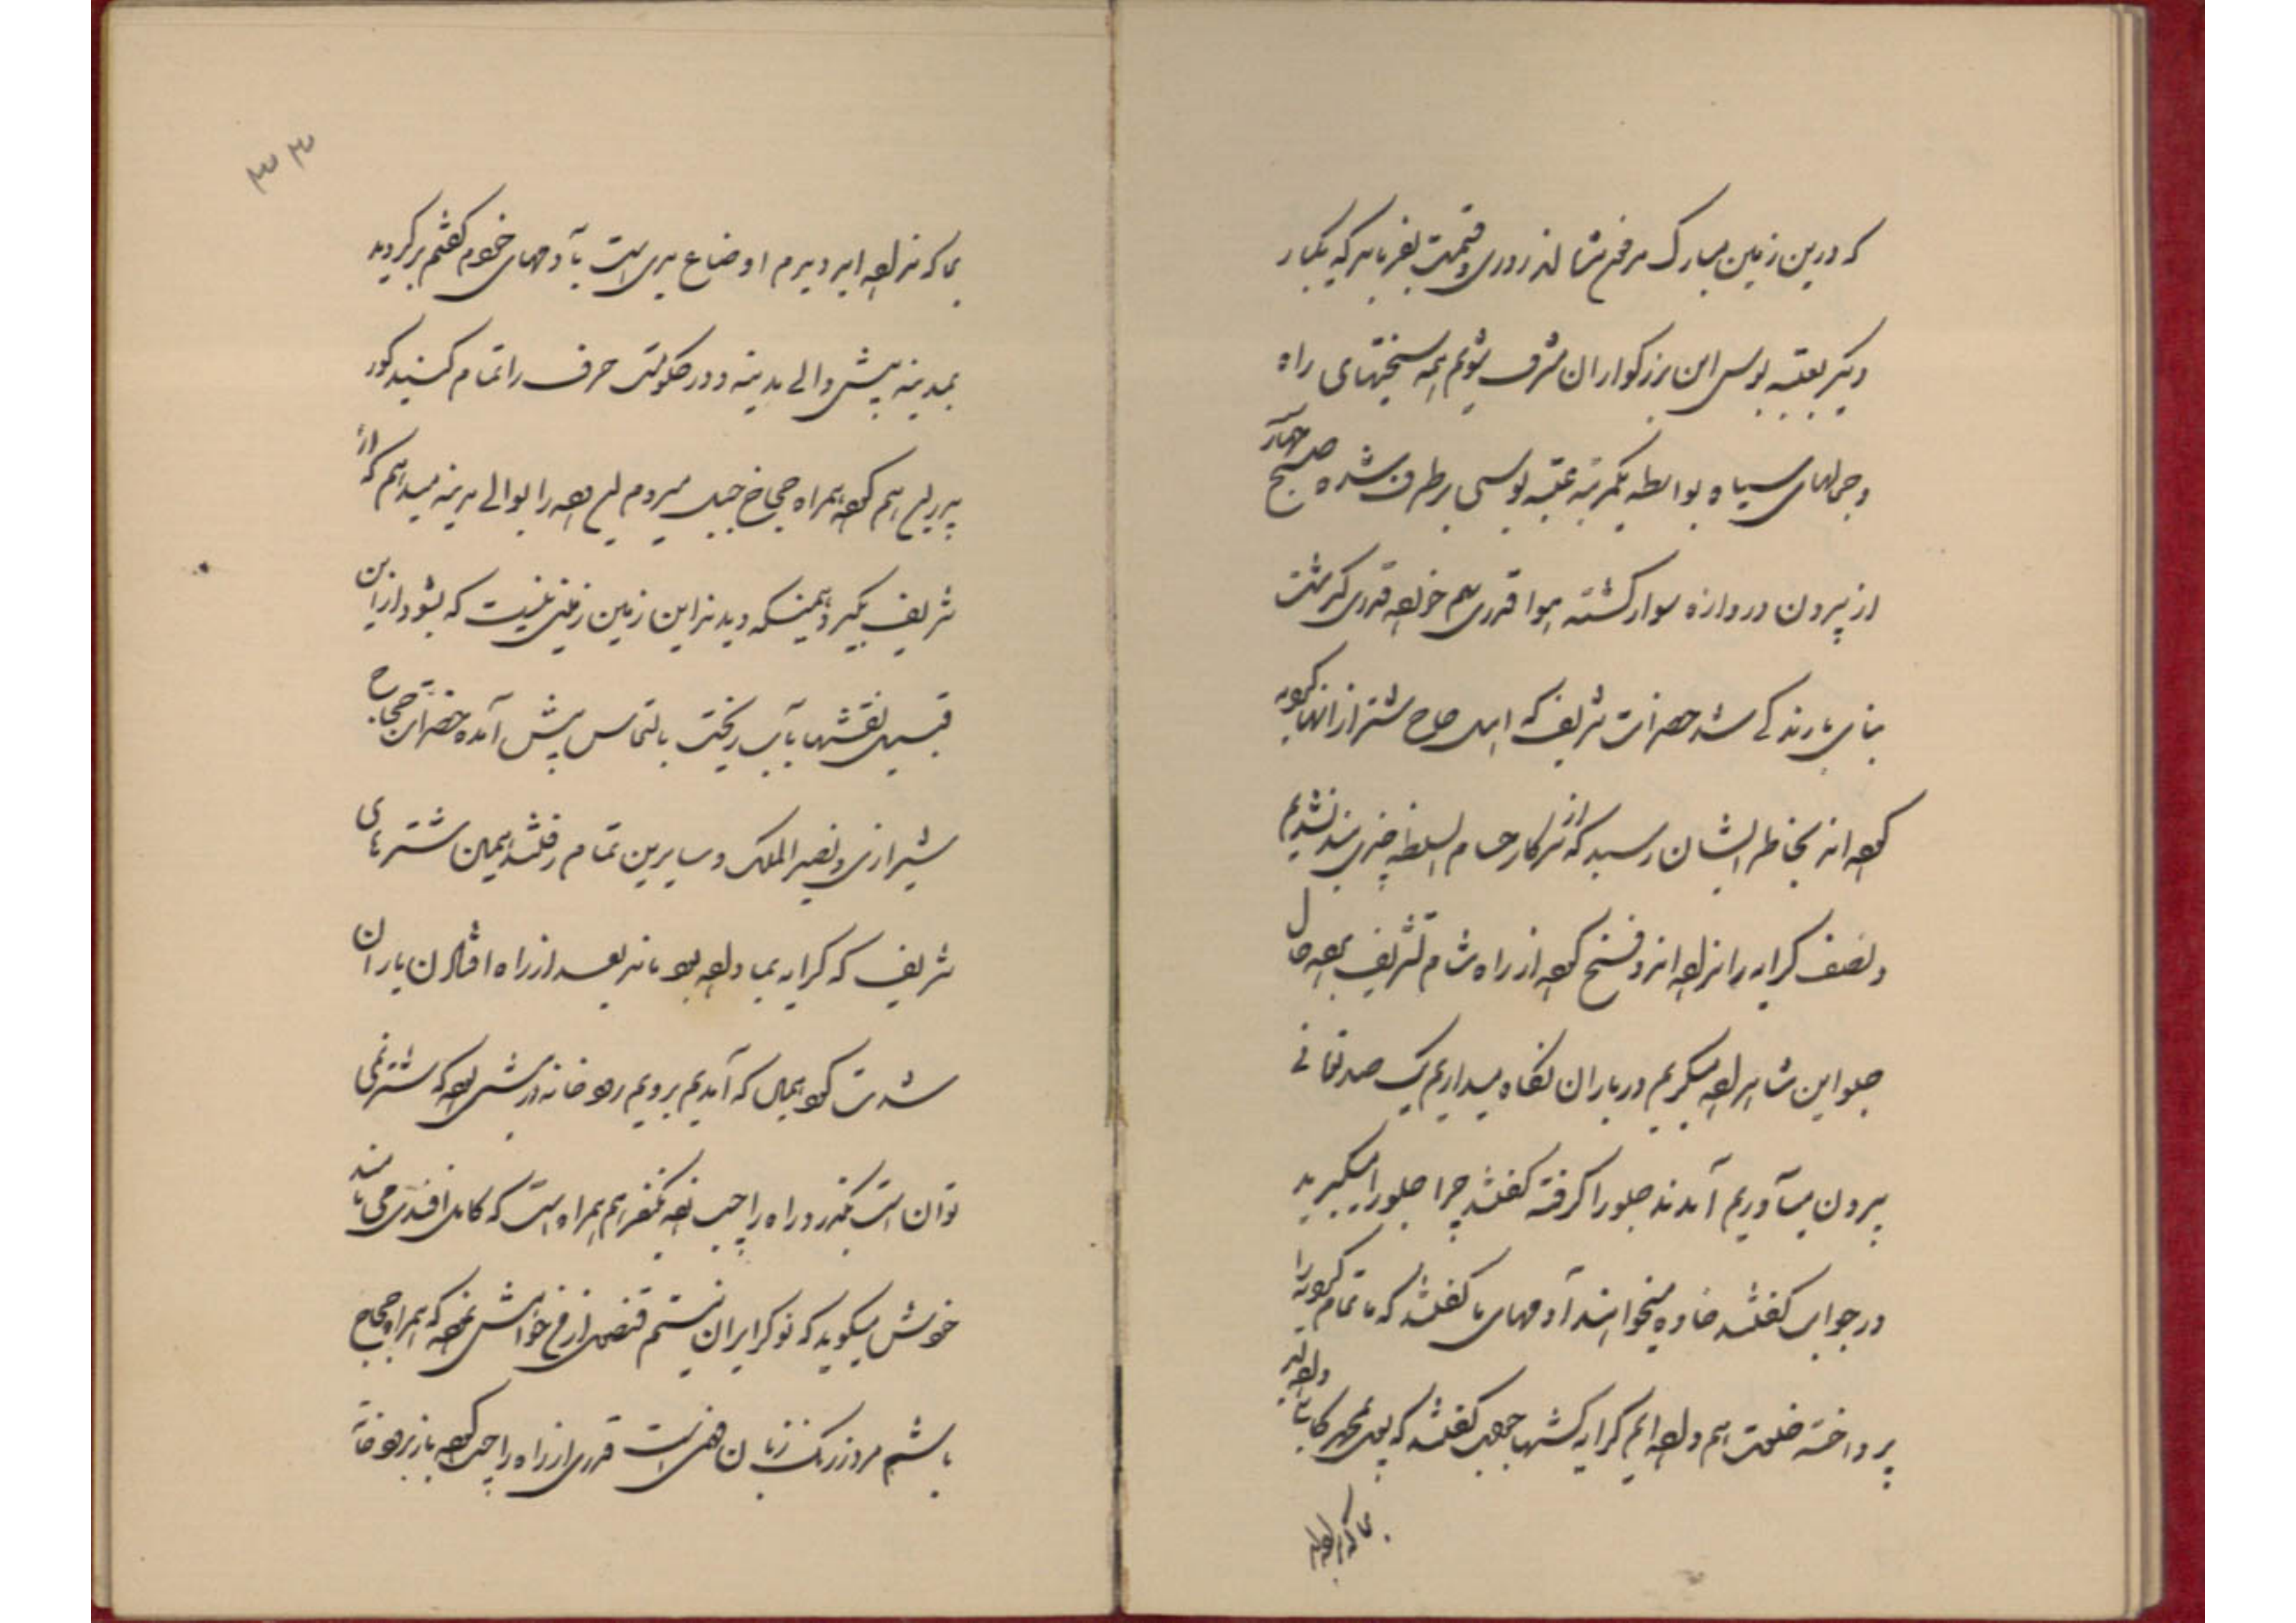 که درین زمین مبارک مدفون شده‌اند روزی و قسمت بفرماید که یکبار
دیگر بعتبه بوس این بزرگواران مشرف شویم همه سختیهای راه
و جمالهای سیاه بواسطه یکمرتبه عتبه بوسی برطرف شده صبح چهار
از بیرون دروازه سوار گشته هوا قدری هم خورده قدری گذشت
بنای بارندگی شد حضرات شریف که اهل حاج شتر از آنها کرایه
کرده‌اند بخاطر ایشان رسید که از سرکار حسام السلطنه چیزی بند نشدیم
و نصف کرایه را نداده‌اند و فسخ کرده از راه شام تشریف برده حال
جلو این شاهزاده میگیریم در باران نگاه میداریم یک صد تومانی
بیرون میآوریم آمدند جلو را گرفته گفتند چرا جلو را میگیرید
در جواب گفتند خاوه میخواهند آدمهای ما گفتند که ما تمام کرایه را
پرداخته خلعت هم داده‌ایم کرایه کشها جمع گفتند که پول بمحمد کاب داده‌اید
بما که نداده‌اید
بما که نداده‌اید دیدم اوضاع بدی است بآدمهای خودم گفتم برگردید
بمدینه پیش والی مدینه و در حکومت حرف را تمام کنید کور
پدری هم کرده همراه حجاج جبل میروم این را بوالی مدینه میدهم که از
شریف بگیرد همینکه دیدند این زمین زمینی نیست که بشود از این
قبیل نقشها بآب ریخت بالتماس پیش آمده حضرات حجاج
شیرازی و نصیر الملک و سایرین تمام رفتند همین شترهای
شریف که کرایه بما داده بود ماند بعد از راه افتادن باران
شدت کرد همان که آمدیم برویم رودخانه در پیش بود که شتر نمی
توان است بگذرد راه را چپ نموده یکنفر هم همراه است که کامل افندی می نامند
خودش میگوید که نوکر ایران نیستم قنصل از من خواهش نموده که همراه حجاج
باشم مرد زرنگ زبان فهمی است قدری از راه را چپ کرده باز برودخانه
۳۳